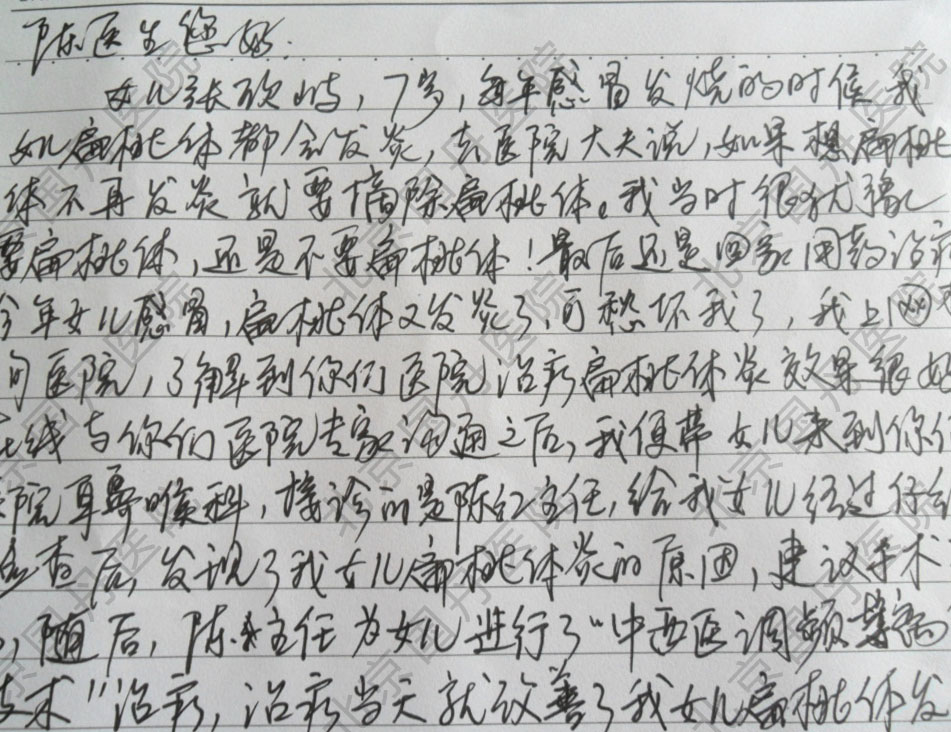 陈医生您好.
女儿张欣屿，7岁，每年感冒发烧的时候我
女儿扁桃体都会发炎，去医院大夫说，如果想扁桃
体不再发炎就要摘除扁桃体。我当时很犹豫
要扁桃体，还是不要扁桃体！最后还是回家用药治疗
今年女儿感冒，扁桃体又发炎了，可愁坏我了，我上网
询医院，了解到你们医院治疗扁桃体炎效果很好
在线与你们医院专家沟通之后，我便带女儿来到你们
医院耳鼻喉科，接诊的是陈红主任，给我女儿经过仔细
检查后，发现了我女儿扁桃体炎的原因，建议手术
，随后，陈主任为女儿进行了“中西医调频等离
技术”治疗，治疗当天就改善了我女儿扁桃体发
北京国丹医院